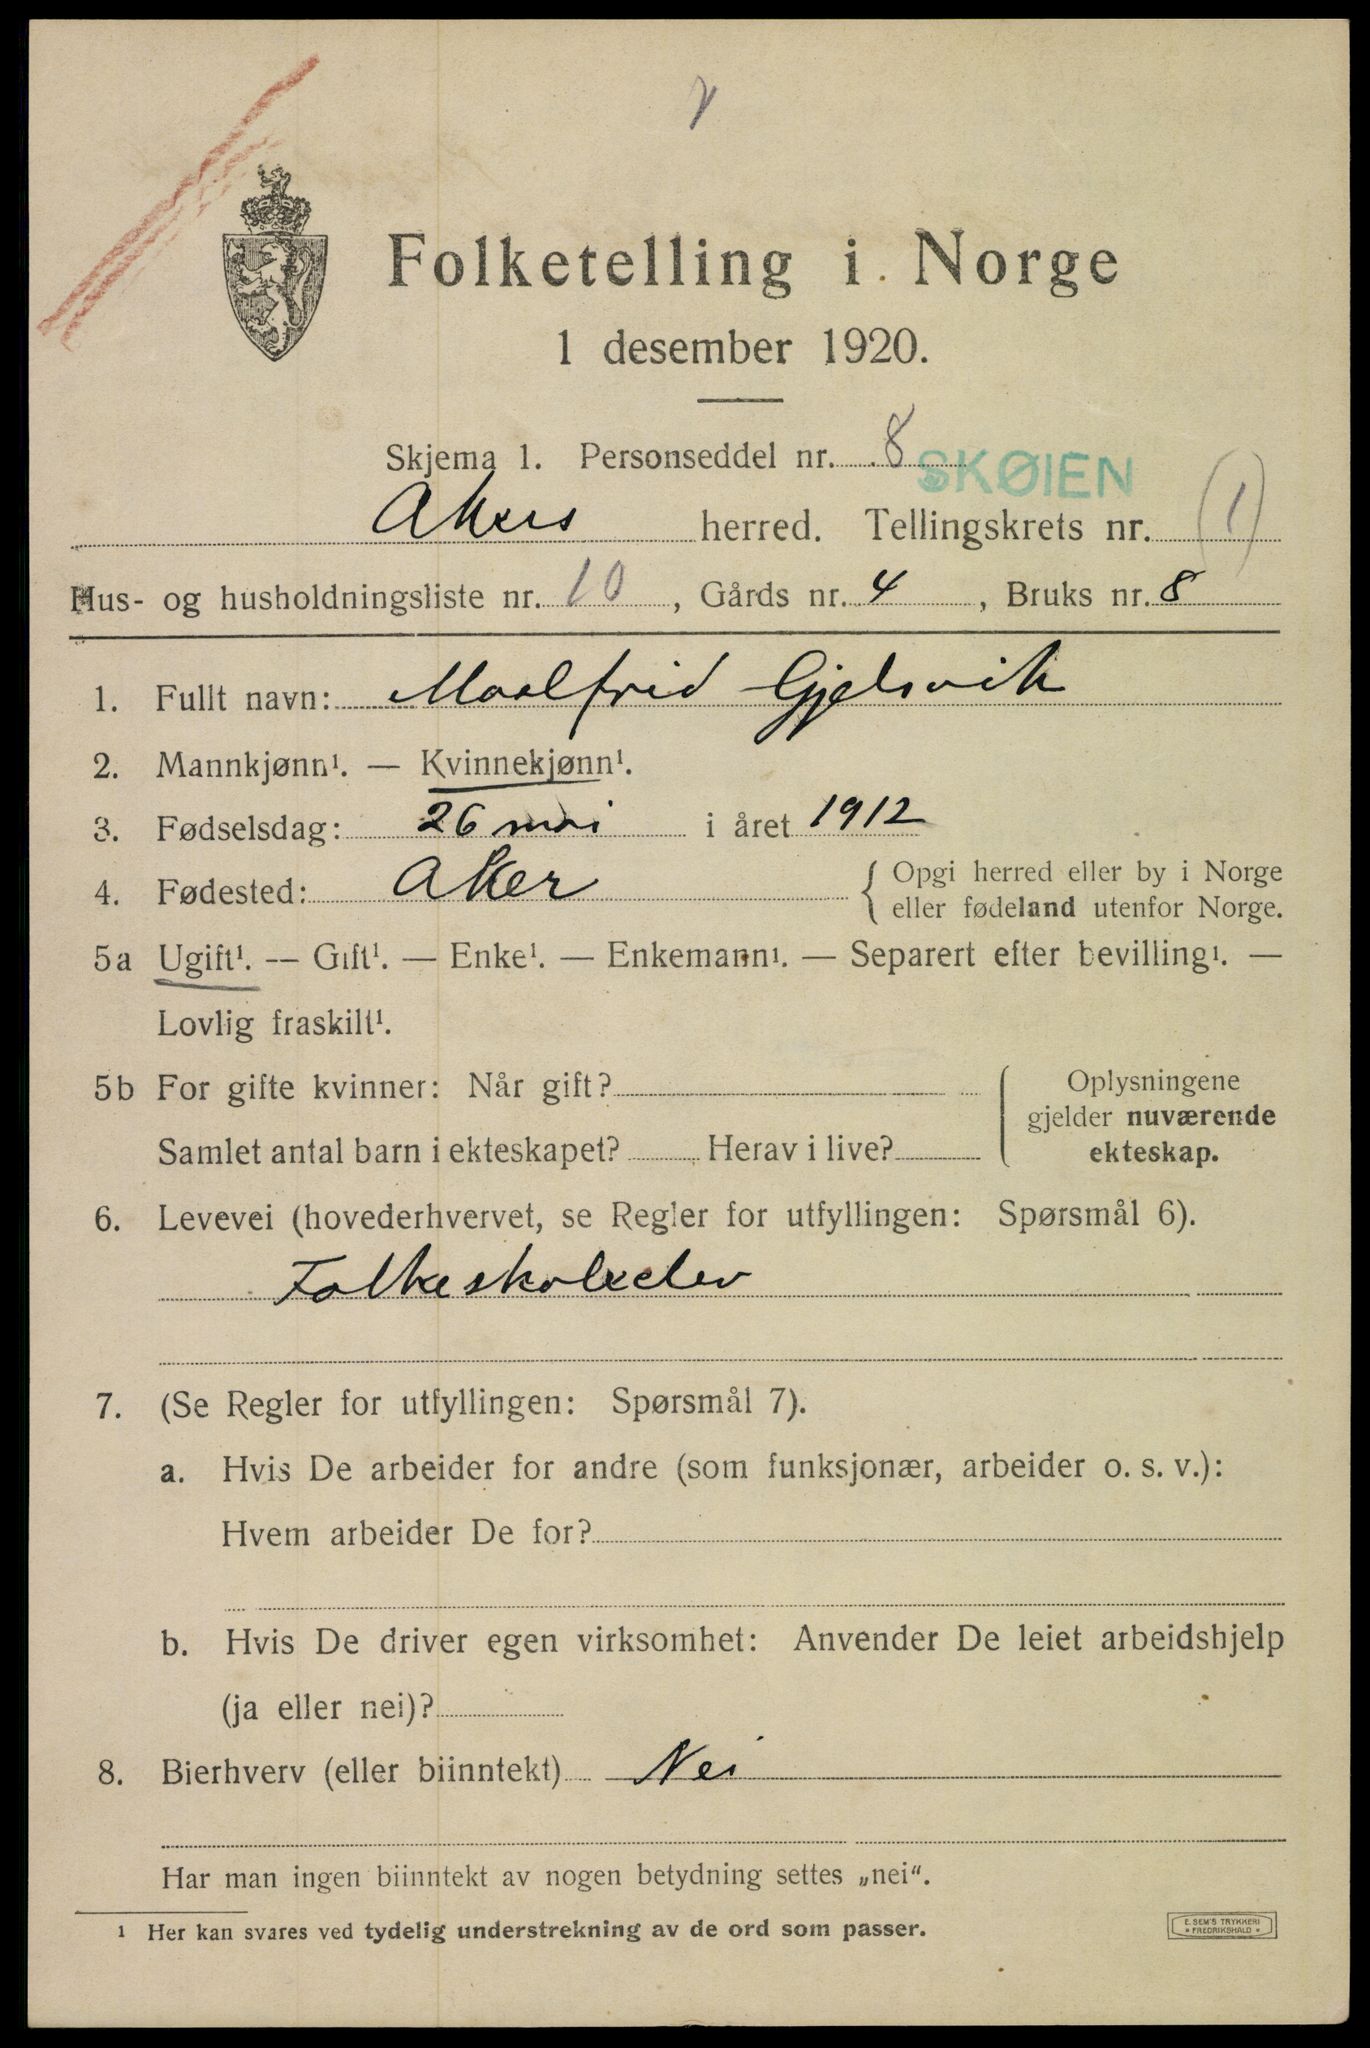 Folketelling i Norge
1 desember 1920.
Skjema 1. Personseddel nr. 8
SKØIEN
Akers herred. Tellingskrets nr. (1)
Hus- og husholdningsliste nr. 10, Gårds nr. 4, Bruks nr. 8
1. Fullt navn: Maalfrid Gjelsvik
2. Mannkjønn¹. — Kvinnekjønn¹.
3. Fødselsdag: 26 mai i året 1912
4. Fødested: Aker { Opgi herred eller by i Norge
eller fødeland utenfor Norge.
5a Ugift¹. — Gift¹. — Enke¹. — Enkemann¹. — Separert efter bevilling¹. —
Lovlig fraskilt¹.
5b For gifte kvinner: Når gift?
Samlet antal barn i ekteskapet? Herav i live?
Oplysningene
gjelder nuværende
ekteskap.
6. Levevei (hovederhvervet, se Regler for utfyllingen: Spørsmål 6).
Folkeskoleelev
7. (Se Regler for utfyllingen: Spørsmål 7).
a. Hvis De arbeider for andre (som funksjonær, arbeider o. s. v.):
Hvem arbeider De for?
b. Hvis De driver egen virksomhet: Anvender De leiet arbeidshjelp
(ja eller nei)?
8. Bierhverv (eller biinntekt) Nei
Har man ingen biinntekt av nogen betydning settes „nei“.
¹ Her kan svares ved tydelig understrekning av de ord som passer.
E. SEM'S TRYKKERI
* FREDRIKSHALD *